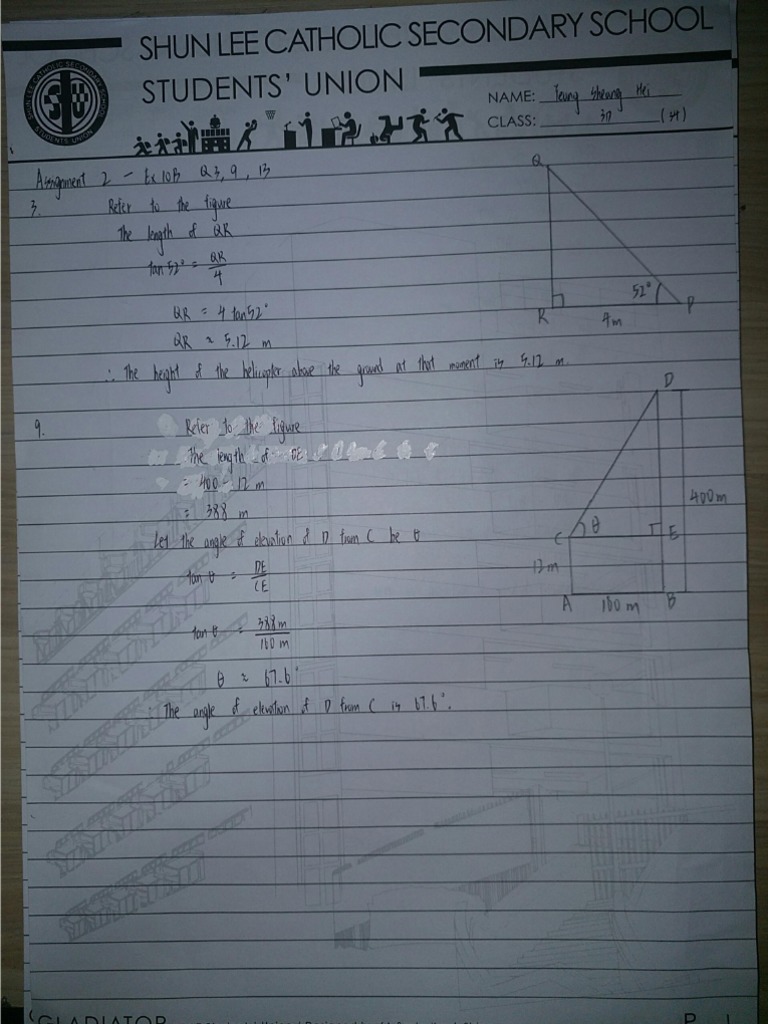 SHUN LEE CATHOLIC SECONDARY SCHOOL
STUDENTS' UNION
SHUN LEE CATHOLIC SECONDARY SCHOOL
STUDENTS UNION
NAME: Sheung Hei
CLASS: 3D
Assignment 2 - Ex 10B Q3, 9, 13
3. Refer to the figure
The length of QR
tan 52° = QR/4
QR = 4 tan 52°
QR ≈ 5.12 m
∴ The height of the helicopter above the ground at that moment is 5.12 m.
Q
R
52°
P
4m
9. Refer to the figure
The length of DE
= 400 - 12 m
= 388 m
Let the angle of elevation of D from C be θ
tan θ = DE/CE
tan θ = 388m/160 m
θ ≈ 67.6°
∴ The angle of elevation of D from C is 67.6°.
D
400m
C
θ
E
12m
A
160 m
B
GLADIATOR
P. 1